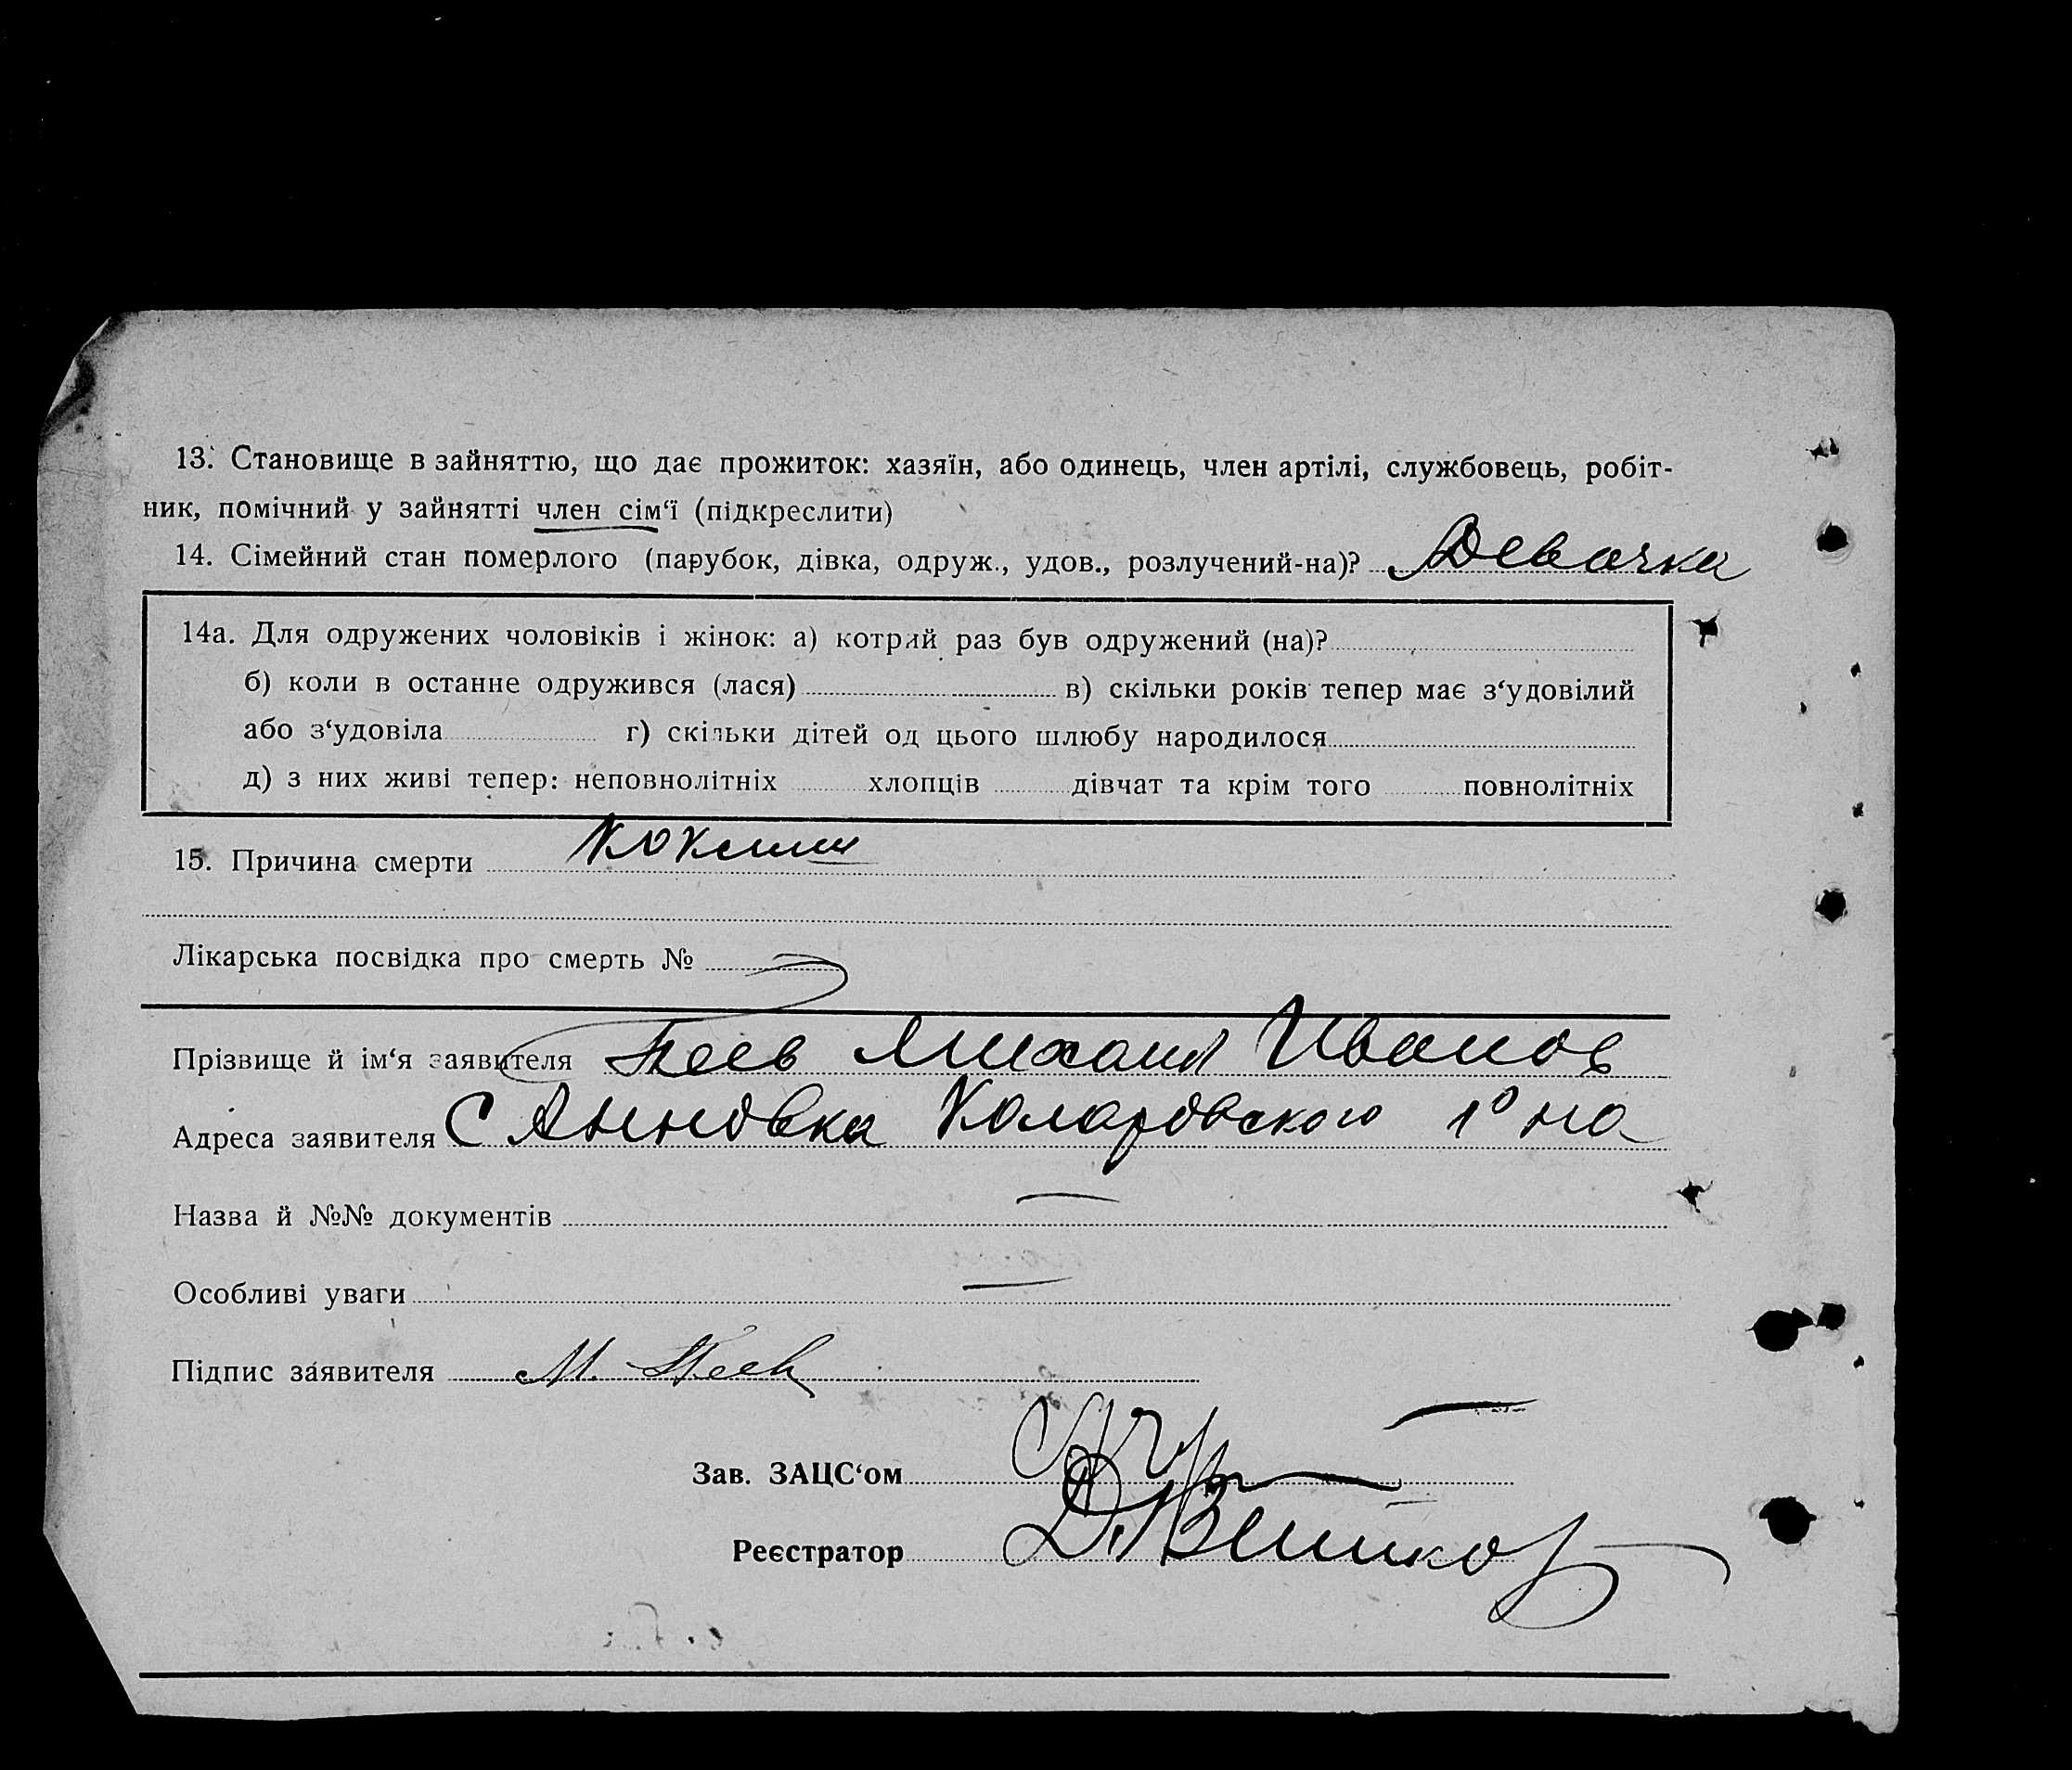 13. Становище в зайняттю, що дає прожиток: хазяїн, або одинець, член артілі, службовець, робіт-
ник, помічний у зайнятті член сім‘ї (підкреслити)
14. Сімейний стан померлого (парубок, дівка, одруж., удов., розлучений-на)? Девочка
14а. Для одружених чоловіків і жінок: а) котрий раз був одружений (на)?
б) коли в останне одружився (лася) в) скільки років тепер має з‘удовілий
або з‘удовіла г) скільки дітей од цього шлюбу народилося
д) з них живі тепер: неповнолітніх хлопців дівчат та крім того повнолітніх
15. Причина смерти Коклюш
Лікарська посвідка про смерть №
Прізвище й ім‘я заявителя Пеев Михаил Иванов
Адреса заявителя С Анновка Коларовского р на
Назва й №№ документів —
Особливі уваги —
Підпис заявителя М. Пеев
Зав. ЗАЦС‘ом
Реєстратор